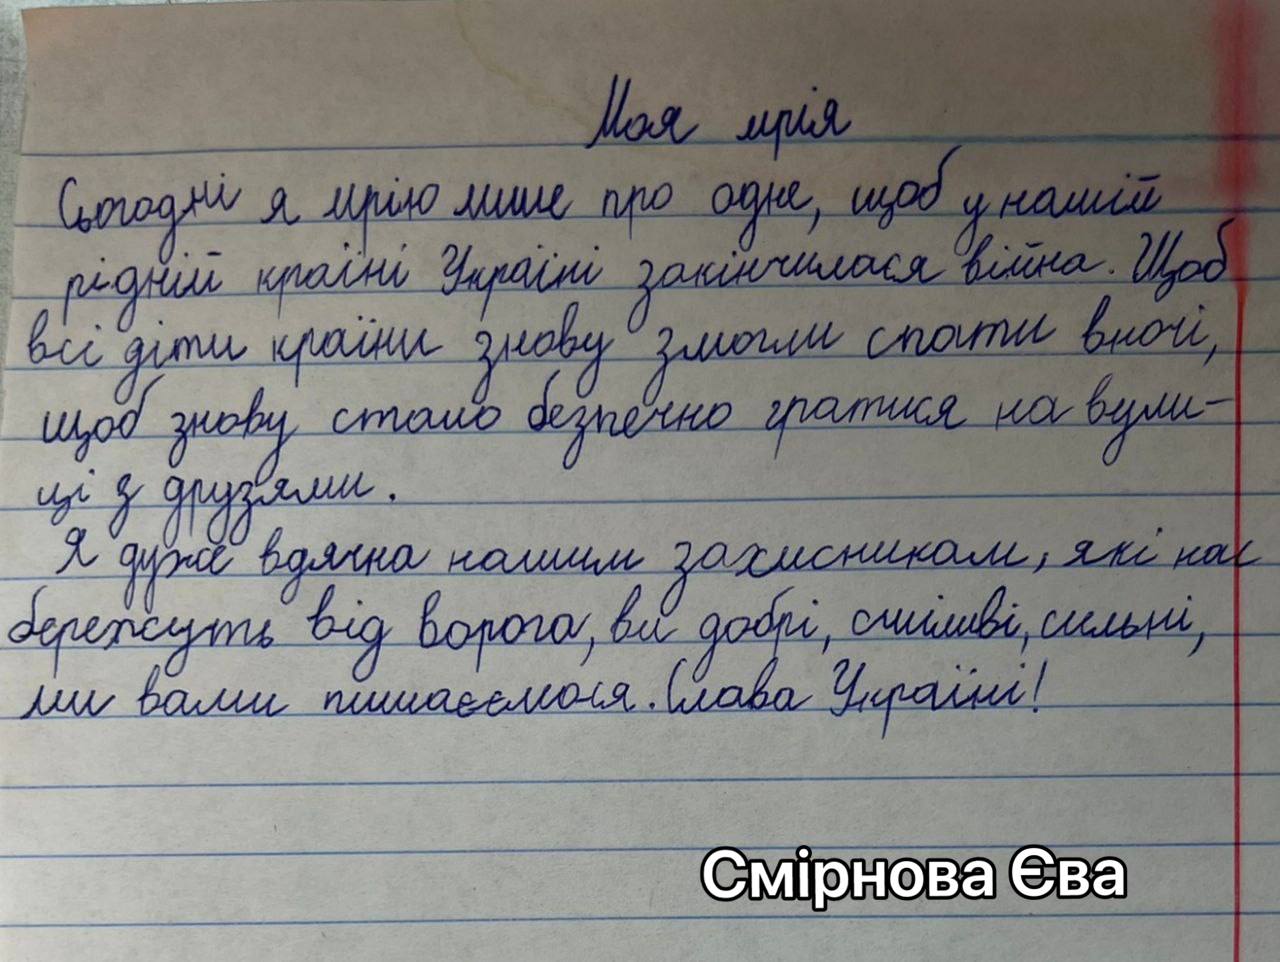 Моя мрія
Сьогодні я мрію лише про одне, щоб у нашій
рідній країні Україні закінчилася війна. Щоб
всі діти країни знову змогли спати вночі,
щоб знову стало безпечно гратися на вули-
ці з друзями.
Я дуже вдячна нашим захисникам, які нас
бережуть від ворога, ви добрі, сміливі, сильні,
ми вами пишаємося. Слава Україні!
Смірнова Єва